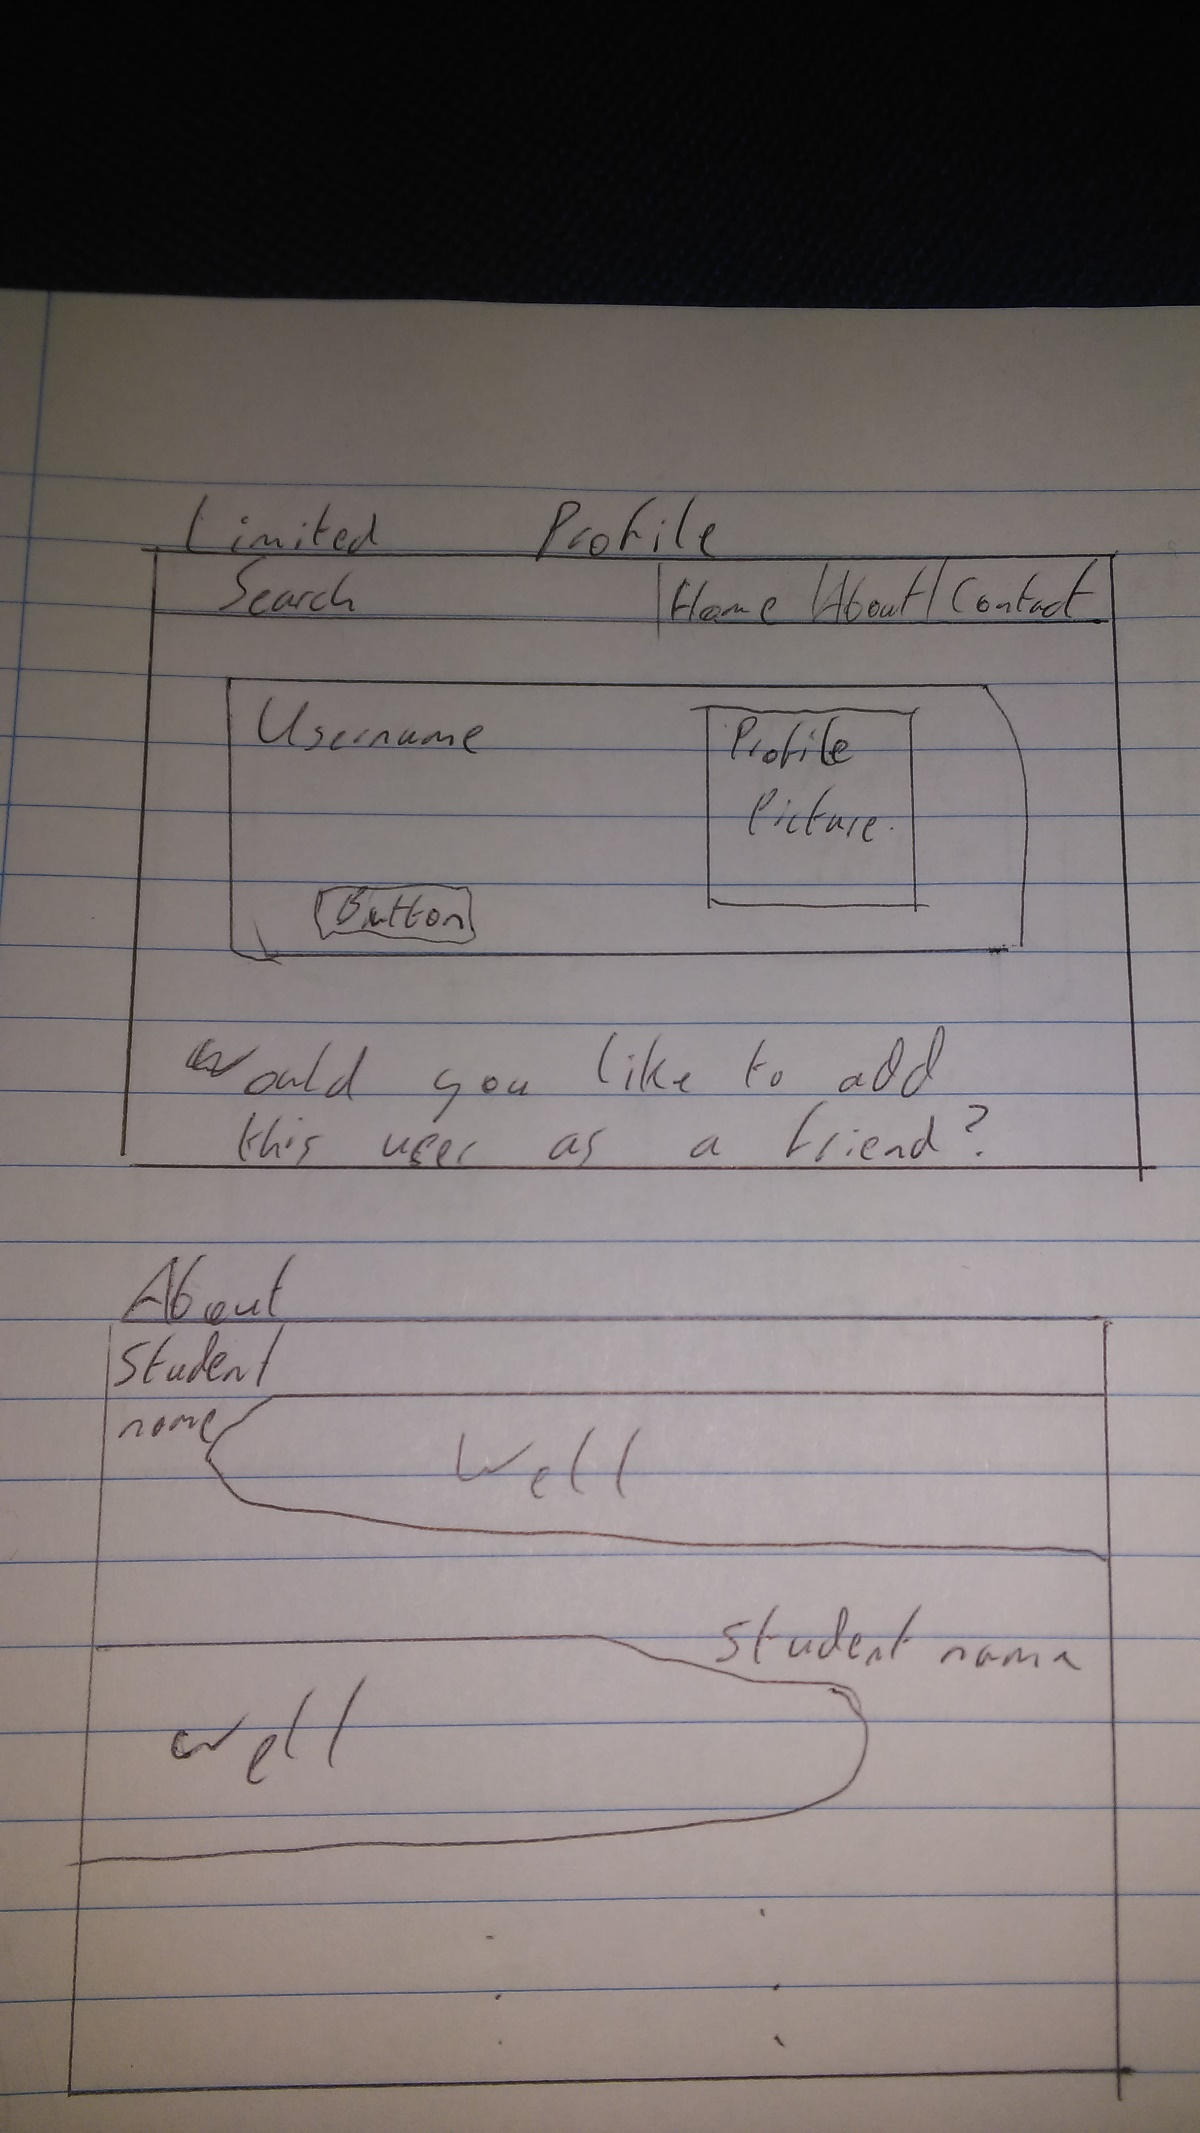 Limited Profile
Search Home About Contact
Username
Profile
Picture.
Button
Would you like to add
this user as a friend?
About
Student
name
Well
Student name
well